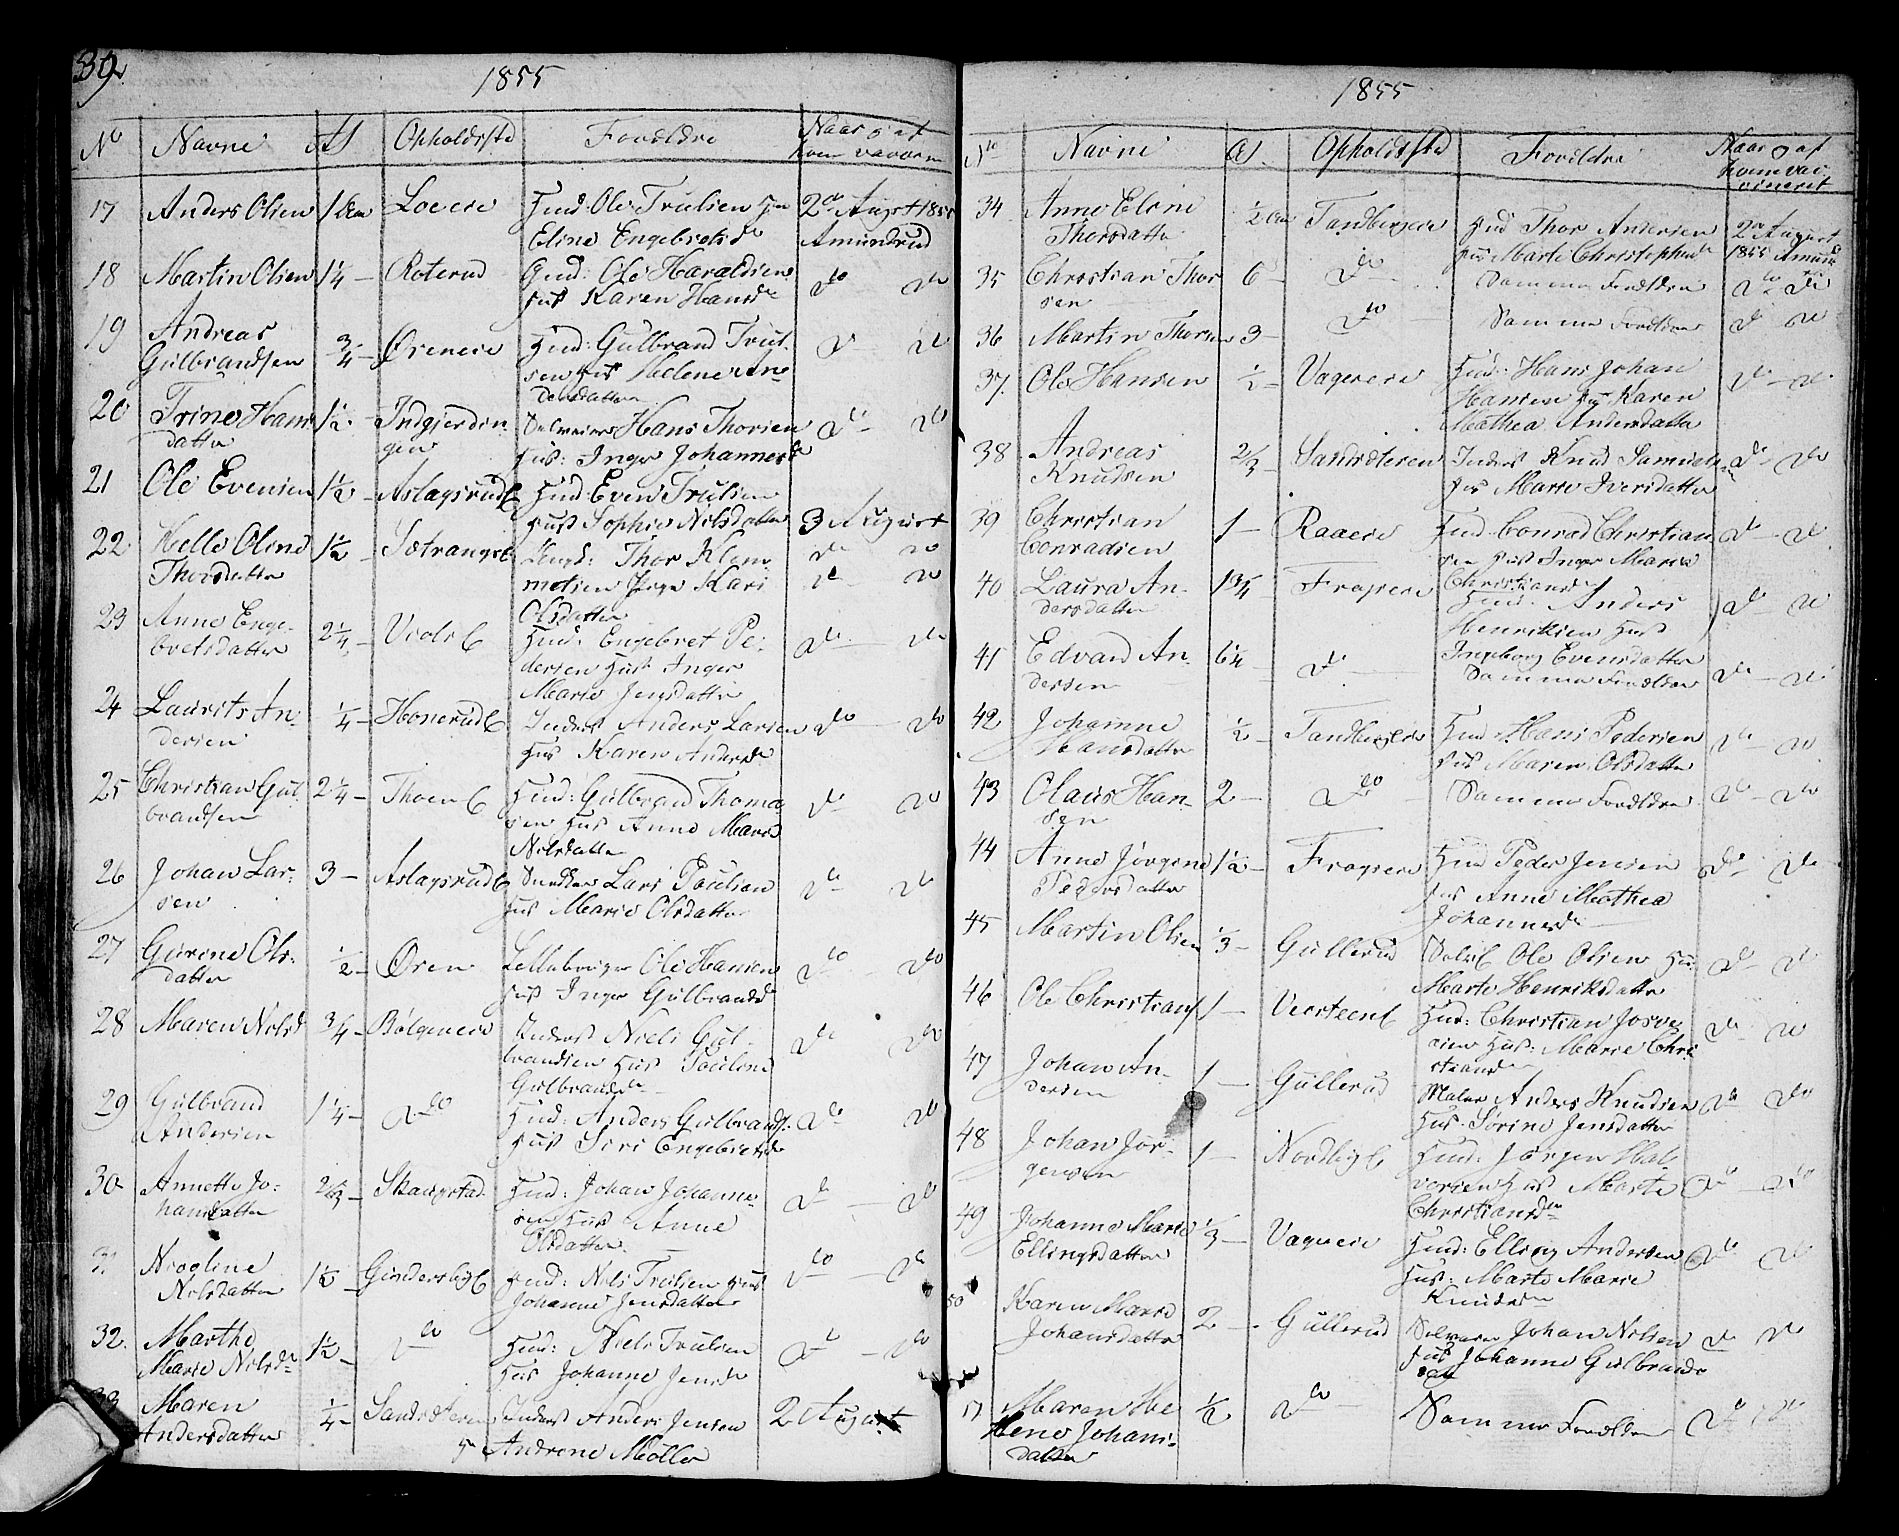 39
1855
No Navne Al Opholdsstd Foreldre Naar og af
hvem vaccin
17 Anders Olsen 1 Aar Loeeie Huusd: Ole Trulsen
Eline Engebretsd 2den August 1855
Amundrud
18 Martin Olsen 1 1/4 — Roterud Gmd: Ole Haraldsen
Hust Karen Hansdr do do
19 Andreas
Gulbrandsen 3/4 — Øreneie Huusd: Gulbrand Trul-
sen Hust Helene An-
dersdatter do do
20 Trine Hans
datter 1 1/2 - Indgjerdin
gen Selveier Hans Thorsen
Hus: Inger Johannesdr do do
21 Ole Evensen 1 1/2 — Aslagsrudeie Huusd Even Trulsen
Hust Sophie Nilsdatter 3 August
22 Helle Oline
Thorsdatter 1 1/2 — Sætrangeie Thor Klem
metsen Kari
Olsdatter do do
23 Anne Enge-
bretsdatter 2 1/4 — Huusd: Engebret Pe-
dersen Hust Inger
Marie Jensdatter do — do
24 Laurits An-
dersen 1/4 — Honerudeie Inderst Anders Larsen
Hus Karen Andersdr do — do
25 Christian Gul
brandsen 2 1/4 — Thoeneie Huusd: Gulbrand Thoma
sen Hus Anne Marie
Nilsdatter do — do
26 Johan Lar-
sen 3 — Aslagsrudeie Lars Paulsen
Hus Marie Olsdatter do — do
27 Gurine Ols-
datter 1/2 — Øren Ole Hansen
Hust Inger Gulbrandsdr do do
28 Maren Nilsd 3/4 — Bølgeneie Inderst Niels Gul-
brandsen Hus Pauline
Gulbrandsdr do do
29 Gulbrand
Andersen 1 1/4 — do Huusd: Anders Gulbrands.
Hust Siri Engebretsdr do do
30 Annette Jo-
hansdatter 2/3 — Skaugstad Huusd: Johan Johanne-
sen Hus Anne
Olsdatter do — do
31 Nicoline
Nilsdatter 1 1/2 — Gunderslyeie Huusd: Nils Trulsen Hust
Johanne Jensdatter do — do
32. Marthe
Marie Nilsdr 1 1/2 — do Huusd: Niels Trulsen
Hus Johanne Jensdr do — do
33 Maren
Andersdatter 1/4 — Sandsæteren Inderst Anders Jensen
Andrene Møller 2 August
1855
No Navne Al. Opholdsstd Foreldre Naar og af
hvem vac
cineret
34 Anne Eline
Thorsdatter 1/2 Aar Tandbergeie Huusd Thor Andersen
Hus Marte Christophersdr 2den August
1855
35 Christian Thor
sen 6 — do Samme Foreldre do do
36 Martin Thorsen 3 — do Samme Foreldre do do
37. Ole Hansen 1/2 — Vageneie Huusd: Hans Johan
Hansen Hust Karen
Mathea Andersdatter do — do
38 Andreas
Knudsen 2/3 — Sandsæteren Inderst Knud Samuels
Hus Marte Iversdatter do — do
39 Christian
Conradsen 1 — Raaeeie Huusd Conrad Christian
sen Hust Inger Maria
Christiansdr do — do
40 Laura An-
dersdatter 1 3/4 — Frogeeie Huusd: Anders
Henriksen Hust
Ingeborg Evensdatter do do
41 Edvard An-
dersen 6 1/4 — do Samme Foreldre do — do
42 Johanne
Hansdatter 1/2 — Tandbergeie Huusd Hans Pedersen
Hus Maren Olsdatter do — do
43 Olaus Han-
sen 2 — do Samme Foreldre do — do
44 Anne Jørgine
Pedersdatter 1 1/2 — Frogeeie Huusd Peder Jensen
Hus Anne Mathea
Johannesdr do — do
45 Martin Olsen 1/3 — Gullerud Ole Olsen Hus
Marte Henriksdatter do — do
46 Ole Christians 1 — Versteeneie Huusd: Christian
sen Hus: Marie Chri
stiansdr do — do
47 Johan An-
dersen 1 — Gullerud Maler Anders Knudsen
Hus Sørine Jensdatter do — do
48 Johan Jør-
gensen 1 — Nordbyeie Huusd: Jørgen Hal-
vorsen Hust Marte
Christiansdr do — do
49 Johanne Marie
Ellingsdatter 1/3 — Vageneie Huusd: Elling Andersen
Hus: Marte Marie
Knudsdr do do
50 Karen Marie
Johansdatter 2 — Gullerud Selveier Johan Nilsen
Hust Johanne Gulbrands
dat do do
51 Maren He
lene Johans-
datter 1/2 do Samme Foreldre do do